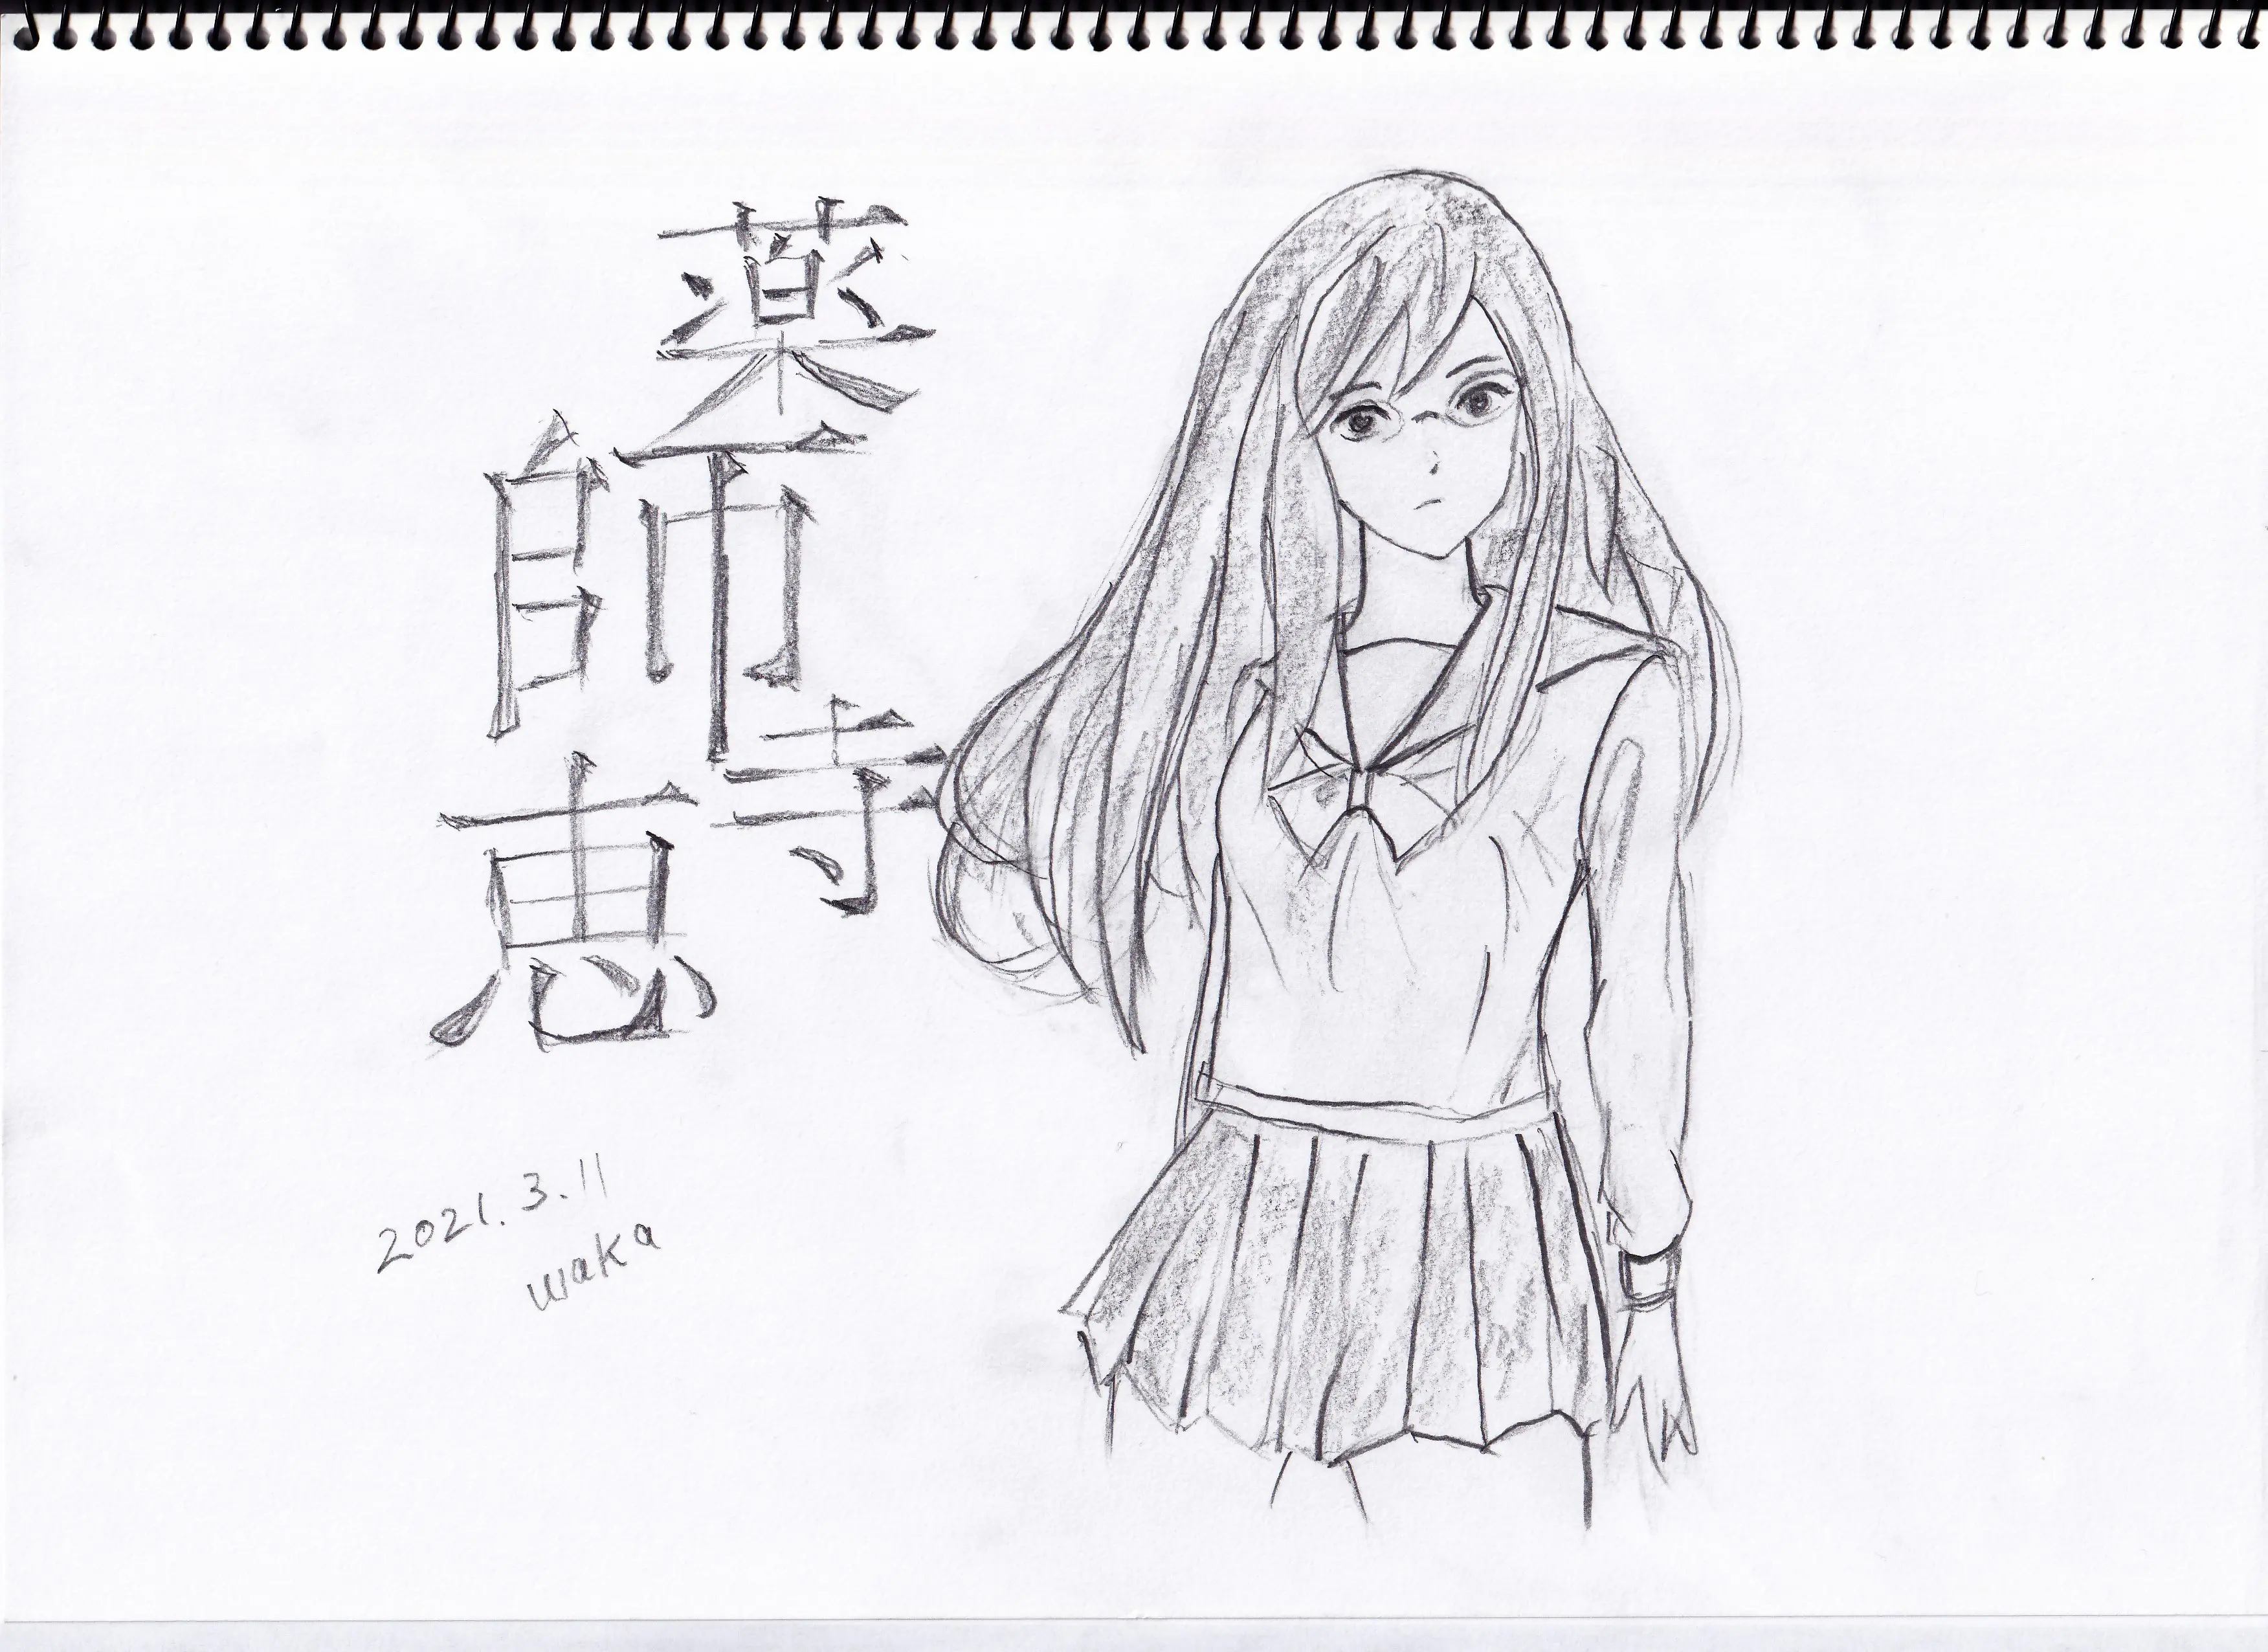 薬師寺恵
2021.3.11
waka